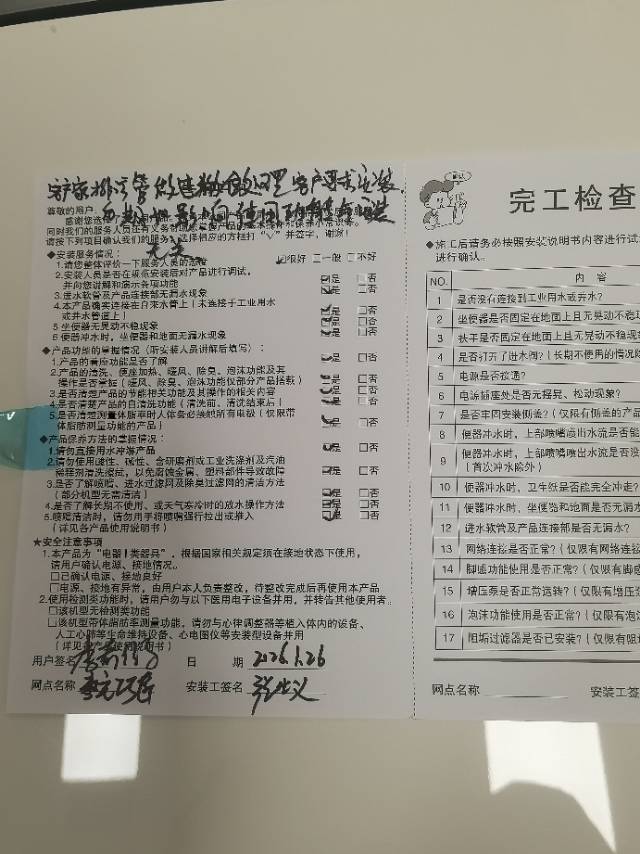 尊敬的用户
◆安装服务情况：
1.请您整体评价一下服务人员的态度 ☑很好 □一般 □不好
2.安装人员是否在规范安装后对产品进行调试，
并向您讲解和演示各项功能 ☑是 □否
3.进水软管及产品连接部无漏水现象 ☑是 □否
4.本产品确实连接在自来水管上（未连接于工业用水
或井水管道上） ☑是 □否
5.坐便器无晃动不稳现象 ☑是 □否
6.便器冲水时，坐便器和地面无漏水现象 ☑是 □否
◆产品功能的掌握情况（听安装人员讲解后填写）：
1.产品的着座功能是否了解 ☑是 □否
2.产品的清洗、便座加热、暖风、除臭、泡沫功能及其
操作是否掌握（暖风、除臭、泡沫功能仅部分产品搭载） ☑是 □否
3.是否清楚产品的节能相关功能及其操作的相关内容 ☑是 □否
4.是否清楚产品的自清洗功能（清洗前、清洗结束后） ☑是 □否
5.是否清楚测量体脂率时人体务必接触所有电极（仅限带
体脂肪测量功能的产品） ☑是 □否
◆产品保养方法的掌握情况：
1.请勿直接用水冲淋产品
2.请勿使用酸性、碱性、含研磨剂或工业洗涤剂及汽油
稀释剂清洗擦拭，以免腐蚀金属、塑料部件导致故障 ☑是 □否
3.是否了解喷嘴、进水过滤网及除臭过滤网的清洁方法
（部分机型无需清洁） ☑是 □否
4.是否了解长期不使用、或天气寒冷时的放水操作方法 ☑是 □否
5.喷嘴清洁时，请勿用手将喷嘴强行拉出或推入 ☑是 □否
（详见各产品使用说明书）
★安全注意事项
1.本产品为“电器Ⅰ类器具”，根据国家相关规定须在接地状态下使用，
请用户确认电源、接地情况。
□已确认电源、接地良好
□电源、接地有异常，由用户本人负责整改，待整改完成后再使用本产品
2.使用检测类功能时，请用户勿与以下医用电子设备并用，并转告其他使用者。
□该机型无检测类功能
□该机型带体脂肪率测量功能，请勿与心律调整器等植入体内的设备、
人工心肺等生命维持设备、心电图仪等安装型设备并用
用户签名 日 期 2026.1.26
网点名称 安装工签名
完工检查
◆施工后请务必按照安装说明书内容进行试
进行确认。
NO. 内 容
1 是否没有连接到工业用水或井水？
2 坐便器是否固定在地面上且无晃动不稳现
3 扶手是否固定在地面上且无晃动不稳现
4 是否打开了进水阀？（长期不使用的情况除
5 电源是否接通？
6 电源插座处是否无摇晃、松动现象？
7 是否牢固安装侧盖？（仅限有侧盖的产品
8 便器冲水时，上部喷嘴喷出水流是否能
9 便器冲水时，上部喷嘴喷出水流是否无
（首次冲水除外）
10 便器冲水时，卫生纸是否能完全冲走？
11 便器冲水时，坐便器和地面是否无漏水
12 进水软管及产品连接部是否无漏水？
13 网络连接是否正常？（仅限有网络连接
14 脚感功能使用是否正常？（仅限有脚感
15 增压泵是否正常运转？（仅限有增压泵
16 泡沫功能使用是否正常？（仅限有泡
17 阻垢过滤器是否已安装？（仅限有阻垢
网点名称 安装工签